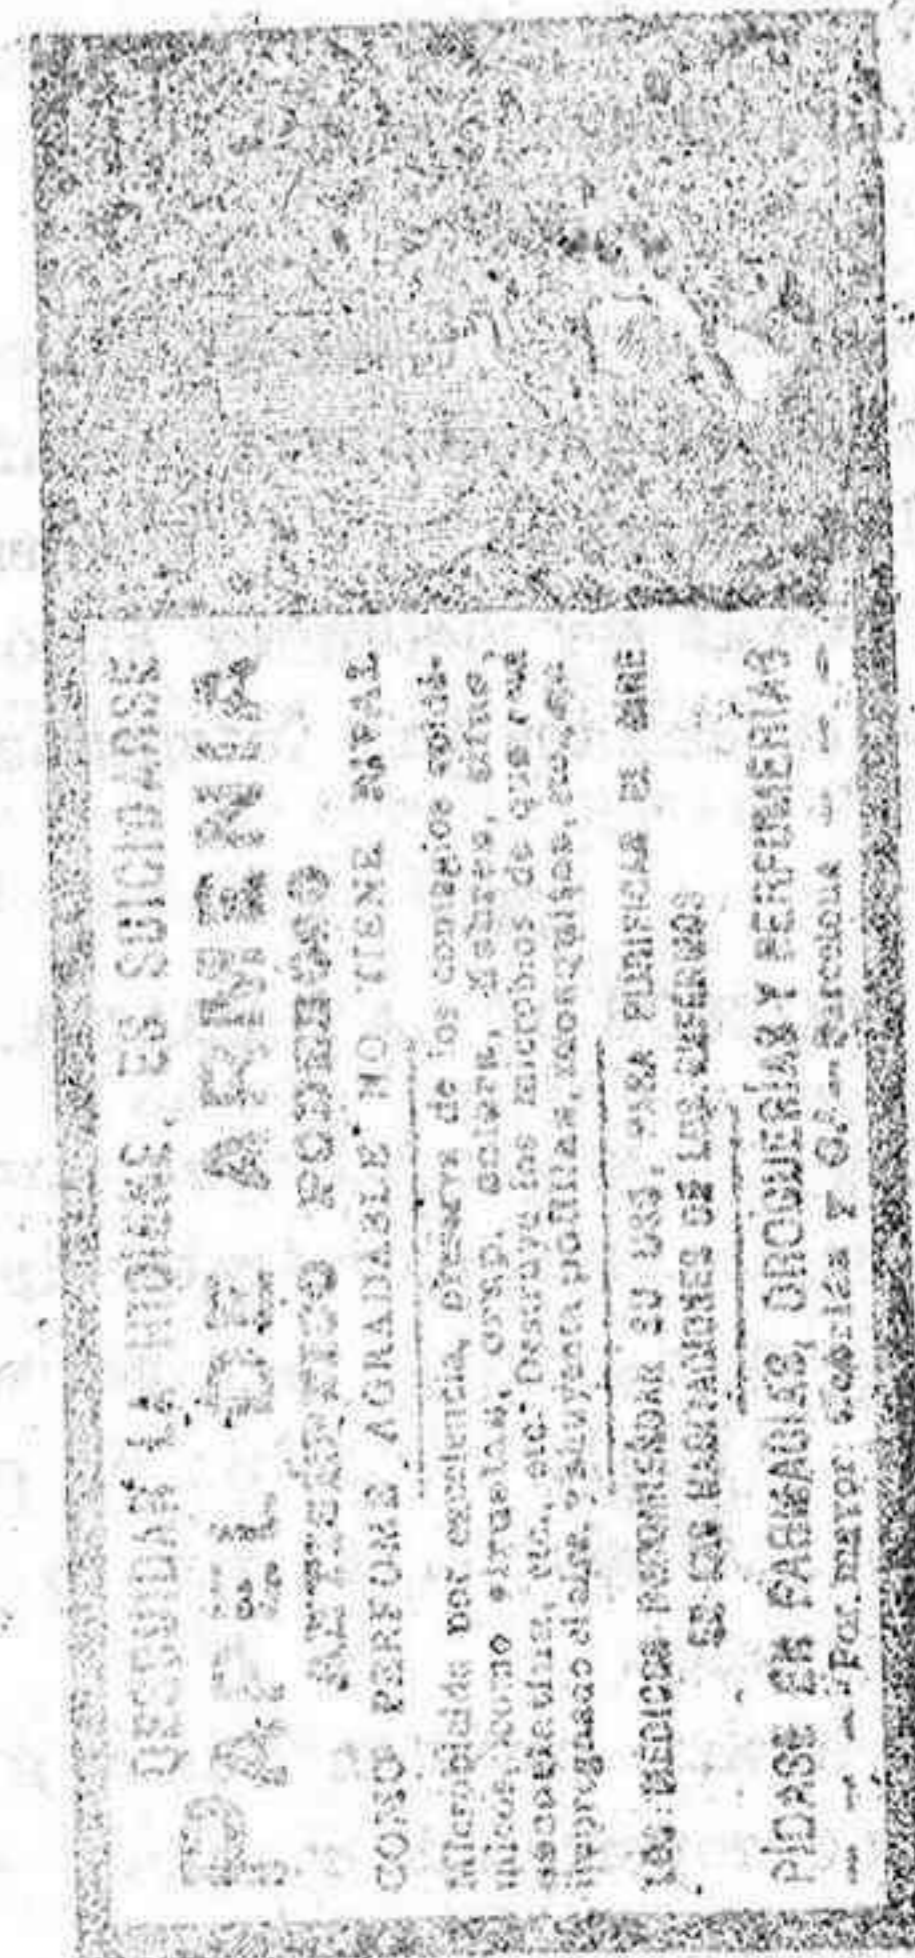 DESCUIDAR LA HIGIENE, ES SUICIDARSE
PAPEL DE ARMENIA
ANTISEPTICO PODEROSO
COMO PERFUME AGRADABLE NO TIENE RIVAL
Microbicida por excelencia, preserva de los contagios epidé-
micos como viruelas, crup, cólera, fiebre, tifus,
etc. Destruye los microbios de que los
polillas, mosquitos,
LOS MEDICOS RECOMIENDAN SU USO, PARA PURIFICAR EL AIRE
EN LAS HABITACIONES DE LOS ENFERMOS
PÍDASE EN FARMACIAS, DROGUERÍAS Y PERFUMERÍAS
Por mayor: y C.ª - Barcelona